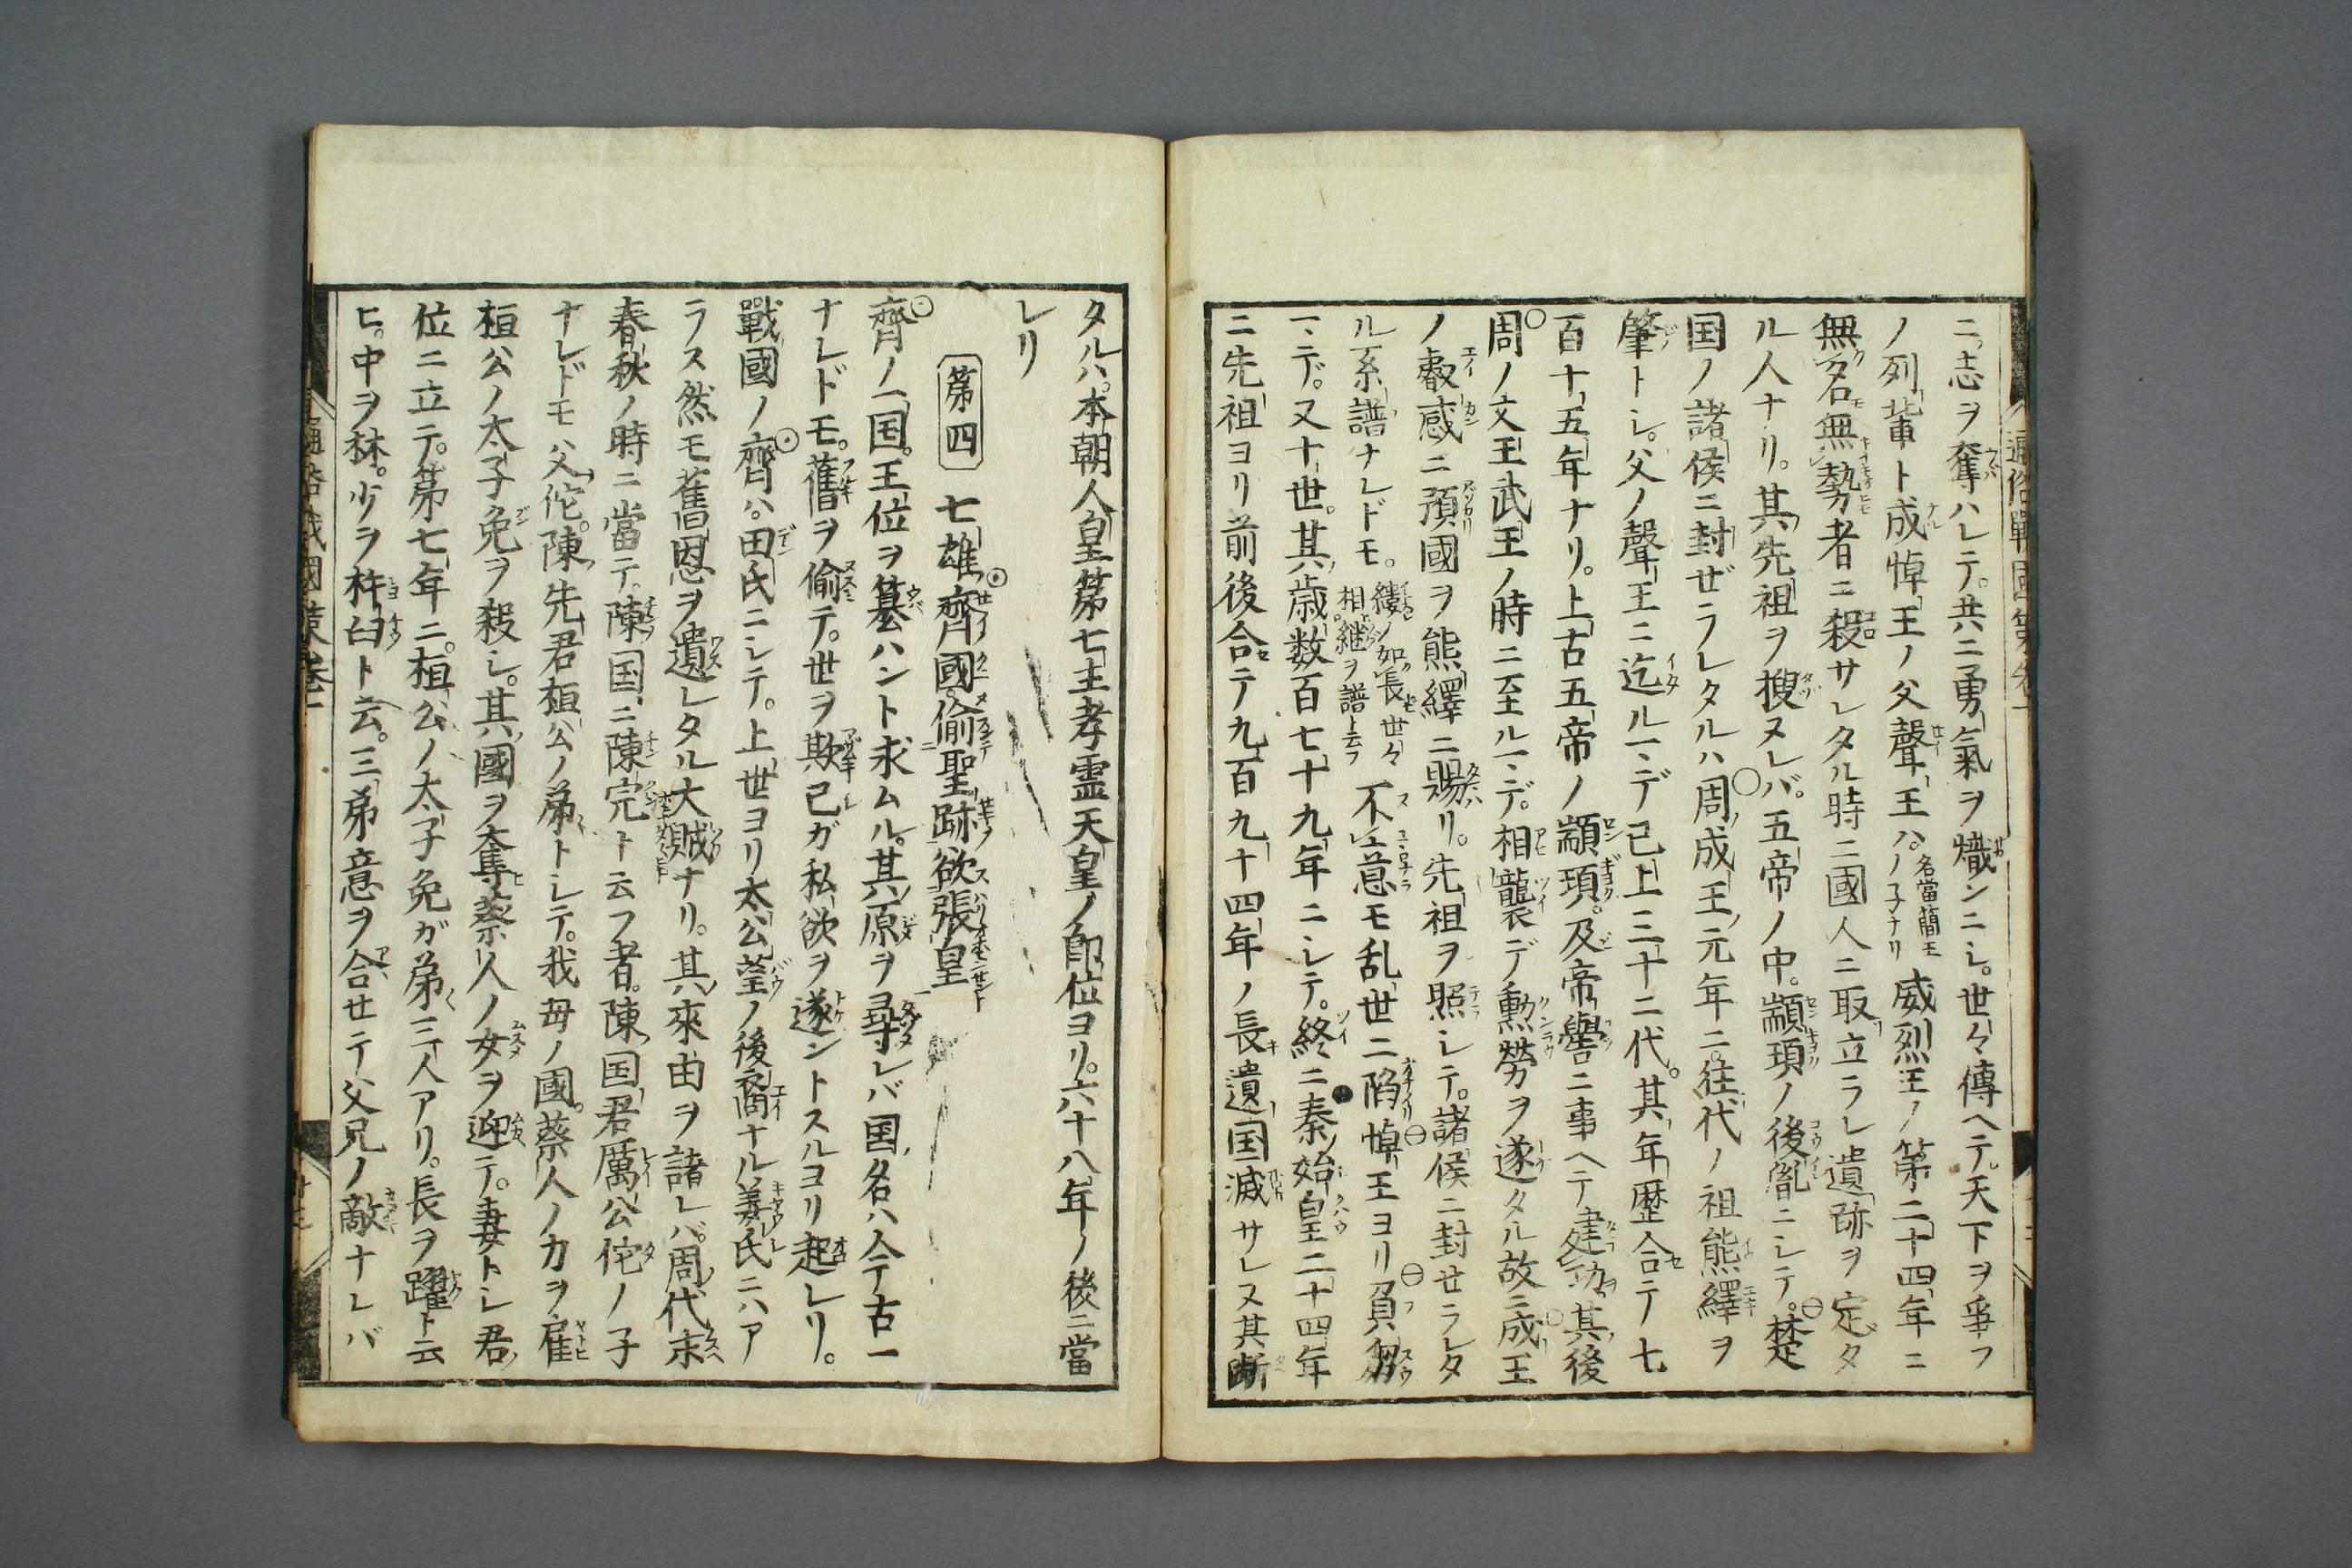 ニ志ヲ奪ハレテ。共ニ勇氣ヲ熾ンニシ。世々傳ヘテ。天下ヲ爭フ
ノ列輩ト成。悼王ノ父聲王ハ。名當簡王ノ子ナリ 威烈王ノ第二十四年ニ
無名無勢者ニ殺サレタル時ニ國人ニ取立ラレ遺跡ヲ定タ
ル人ナリ。其先祖ヲ搜ヌレバ。五帝ノ中。顓頊ノ後胤ニシテ。楚
国ノ諸侯ニ封ゼラレタルハ周ノ成王ノ元年ニ。往代ノ祖熊繹ヲ
肇トシ。父ノ聲王ニ迄ルマデ已上三十二代。其年歴合テ七
百十五年ナリ。上古五帝ノ顓頊。及帝嚳ニ事ヘテ建功ヲ其後
周ノ文王武王ノ時ニ至ルマデ。相襲デ勲勞ヲ遂タル故ニ成王
ノ叡感ニ預國ヲ熊繹ニ賜リ。先祖ヲ照シテ。諸侯ニ封セラレタ
ル系譜ナレドモ。縷ノ如長世々相継ヲ譜ト云フ 不意モ乱世ニ陥悼王ヨリ負芻
マデ。又十世。其歳数百七十九年ニシテ。終ニ秦ノ始皇二十四年
ニ先祖ヨリ前後合テ九百九十四年ノ長遺国滅サレヌ其断
タルハ。本朝人皇第七主孝霊天皇ノ即位ヨリ。六十八年ノ後ニ當
レリ
第四 七雄齊國偷聖跡欲張皇
齊ノ一国。王位ヲ簒ハント求ムル。其原ヲ尋レバ国ノ名ハ今古一
ナレドモ。舊ヲ偷テ。世ヲ欺己ガ私欲ヲ遂ントスルヨリ起レリ。
戰國ノ齊ハ。田氏ニシテ。上世ヨリ太公望ノ後裔ナル姜氏ニハア
ラス然モ舊恩ヲ遺レタル大賊ナリ。其來由ヲ諸レバ。周ノ代ノ末
春秋ノ時ニ當テ。陳国ニ陳完ト云フ者。陳国ノ君厲公佗ノ子
ナレドモハ父佗。陳ノ先君桓公ノ弟トシテ。我母ノ國。蔡人ノ力ヲ雇
桓公ノ太子免ヲ殺シ。其國ヲ奪蔡人ノ女ヲ迎テ。妻トシ君ノ
位ニ立テ。第七年ニ。桓公ノ太子免ガ弟三人アリ。長ヲ躍ト云
ヒ。中ヲ林。少ヲ杵臼ト云。三弟意ヲ合セテ父兄ノ敵ナレバ
通俗戰國策卷一